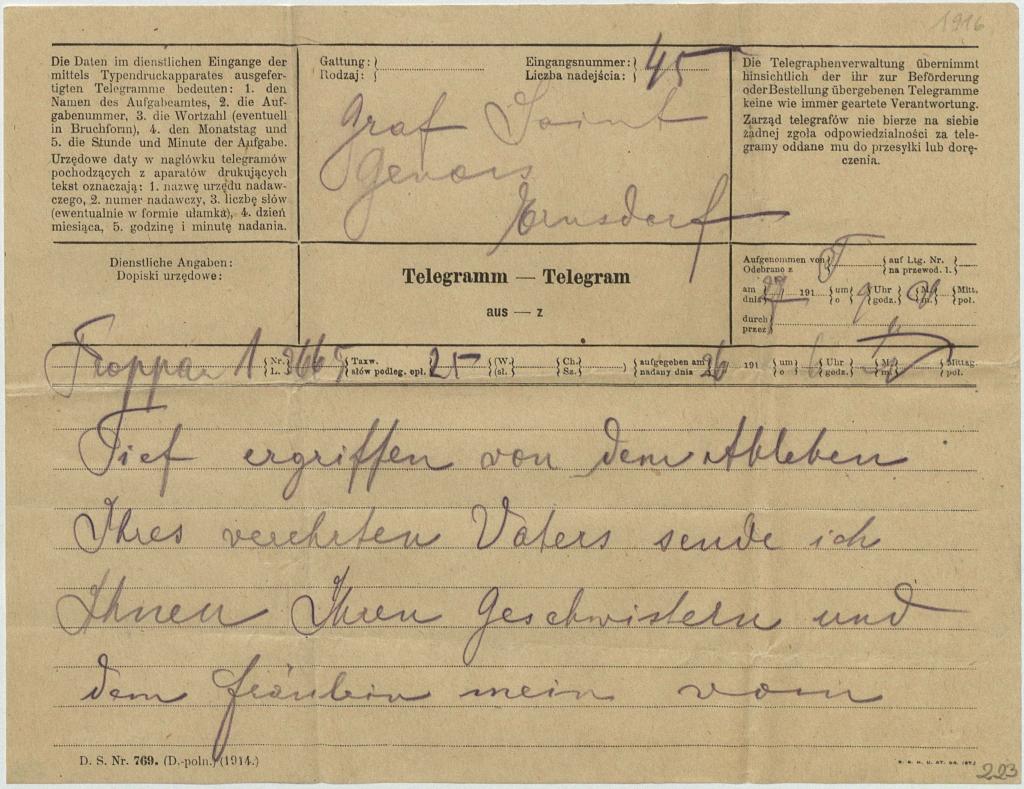 1916
Die Daten im dienstlichen Eingange der
mittels Typendruckapparates ausgefer-
tigten Telegramme bedeuten: 1. den
Namen des Aufgabeamtes, 2. die Auf-
gabenummer, 3. die Wortzahl (eventuell
in Bruchform), 4. den Monatstag und
5. die Stunde und Minute der Aufgabe.
Urzędowe daty w nagłówku telegramów
pochodzących z aparatów drukujących
tekst oznaczają: 1. nazwę urzędu nadaw-
czego, 2. numer nadawczy, 3. liczbę słów
(ewentualnie w formie ułamka), 4. dzień
miesiąca, 5. godzinę i minutę nadania.
Gattung:
Rodzaj:
Eingangsnummer: 45
Liczba nadejścia:
Graf Saint
Genois
Ernsdorf
Die Telegraphenverwaltung übernimmt
hinsichtlich der ihr zur Beförderung
oder Bestellung übergebenen Telegramme
keine wie immer geartete Verantwortung.
Zarząd telegrafów nie bierze na siebie
żadnej zgoła odpowiedzialności za tele-
gramy oddane mu do przesyłki lub dorę-
czenia.
Dienstliche Angaben:
Dopiski urzędowe:
Telegramm — Telegram
aus — z
Aufgenommen von auf Ltg. Nr.
Odebrano z na przewod. l.
am 27 191 um 9 Uhr M. Mitt.
dnia o godz. m. poł.
durch
przez
Troppau 1 Nr. Taxw. 25 (W. Ch. aufgegeben am 26 191 um 6 Uhr M. Mittag.
L. słów podleg. opł. (sł. Sz. nadany dnia o godz. m. poł.
Tief ergriffen von dem Ableben
Ihres verehrten Vaters sende ich
Ihnen Ihren Geschwistern und
dem fräulein mein vom
D. S. Nr. 769. (D.-poln.) (1914.)
223